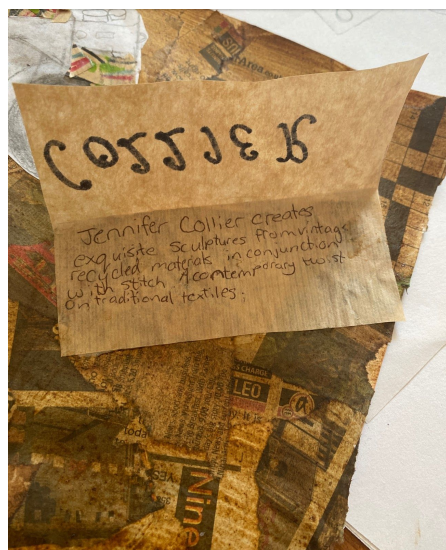 COLLIER
Jennifer Collier creates
exquisite sculptures from vintage
recycled materials in conjunction
with stitch A comtemporary twist
on traditional textiles.
CHANGE
LEO
Nine
YES